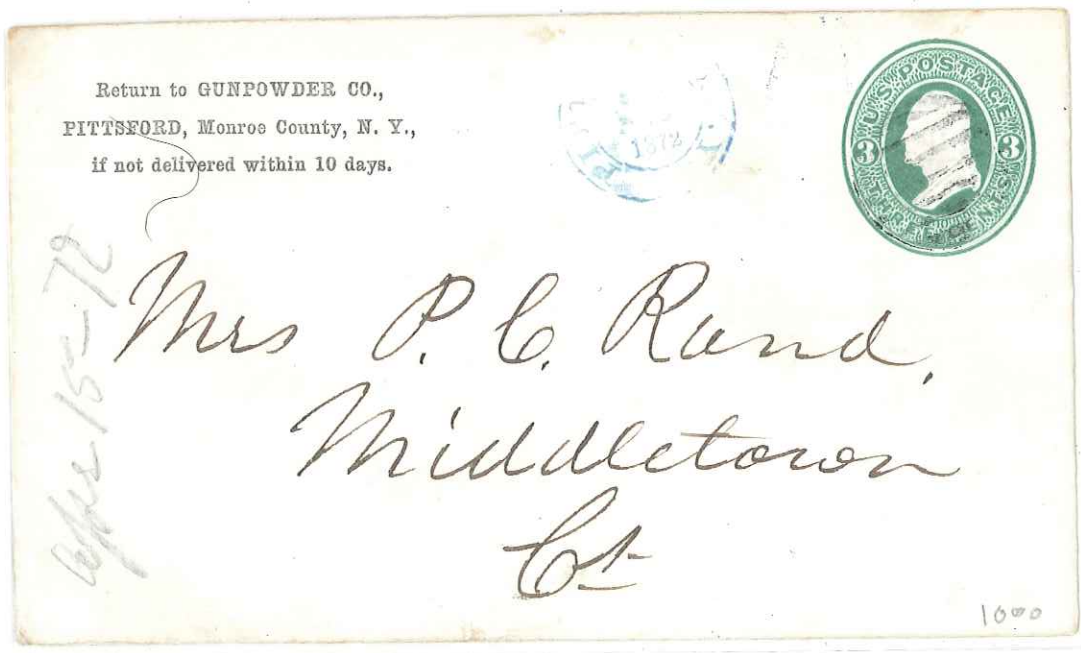 Return to GUNPOWDER CO.,
PITTSFORD, Monroe County, N. Y.,
if not delivered within 10 days.
1872
U.S. POSTAGE
3 3
Mrs P. C. Rand,
Middletown
Ct
15-72
1000